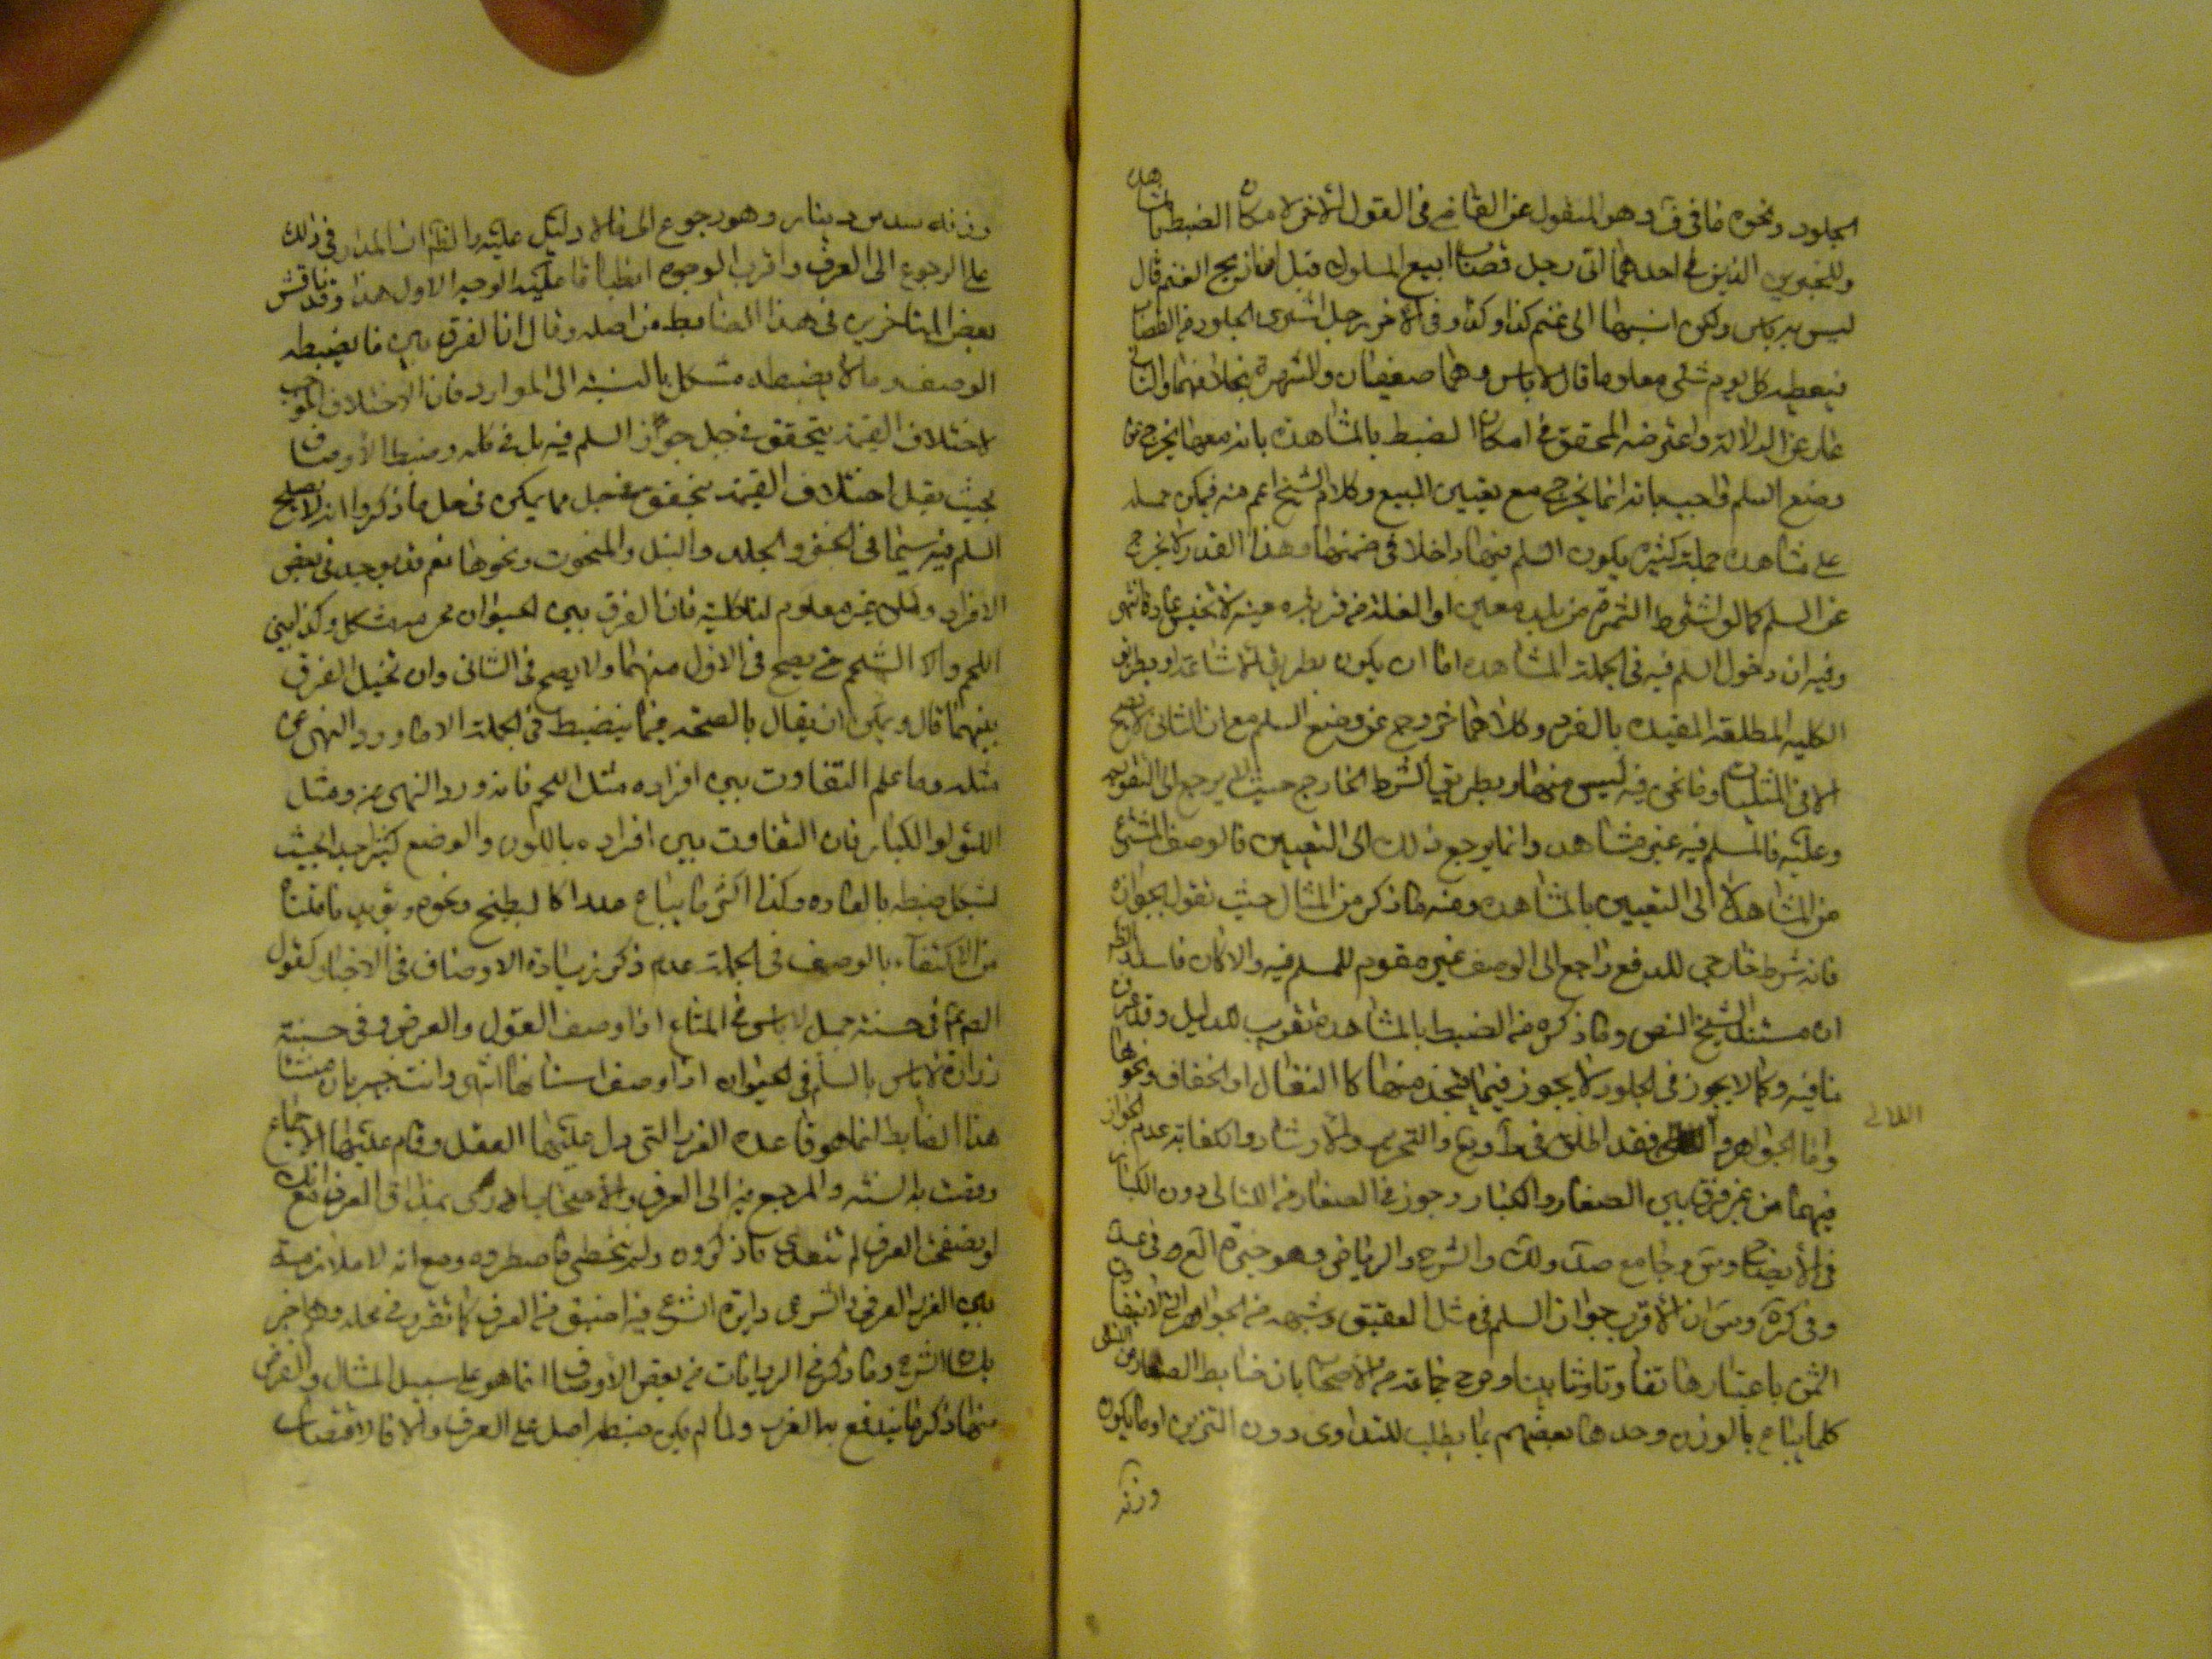 الجلود ونحوه فافي ق د هو المنقول عن القاضي في القول الاخر لامكان الضبط بالمشاهده
وللخبرين الذين في احدهما اتى رجل قصابا ابيع المسلوك قبل ان يذبح الغنم قال
ليس به باس ولكن انسبها الى غنم كذا وكذا وفي الاخر رجل اشترى الجلود من القصاب
فيعطيه كل يوم شئ معلوما قال لا باس وهما ضعيفان وللشهرة بخلافهما والثاني
عار عن الدلالة واعترضه المحقق في امكان الضبط بالمشاهده بانه معها يخرج عن
وضع السلم فاجيب بانه انما يخرج مع تعيين المبيع وكلام الشيخ اعم منه فيمكن حمله
على مشاهدة جملة كثيره يكون السلم فيها داخلا في ضمنها وهذا القدر لا يخرج
عن السلم كما لو اشترط الثمرة من بلد معين او الغلة من قريه معينه لا تخيس عادة انتهى
وفيه ان دخول السلم فيه في الجملة المشاهده اما ان يكون بطريق الاشاعة او بطريق
الكليه المطلقه المقيده بالفرد وكلاهما خروج عن وضع السلم مع ان الثاني لا يصح
الا في المثليات وما نحن فيه ليس منها او بطريق الشرط الخارج حيث لا يرجع الى التقويم
وعليه فالمسلم فيه غير مشاهد وانما يرجع ذلك الى التعيين فالوصف المشترى
من المشاهدة الى التعيين بالمشاهده ومنه ما ذكر من المثال حيث نقول بجوازه
فانه شرط خارجي للدفع راجع الى الوصف غير مقوم للمسلم فيه والا كان فاسدا
ان مستند الشيخ النص وما ذكره من الضبط بالمشاهدة تقريب للدليل وقد عرفت
مافيه وكما لا يجوز في الجلود لا يجوز فيما يتخذ منها كالنعال او الخفاف ونحوها
واما الجواهر و فقد اطلق في ط و يع والتحرير والارشاد والكفاية عدم الجواز
اللالي
فيهما من غير فرق بين الصغار والكبار وجوز في الصغار من اللئالى دون الكبار
في الايضاح و س و جامع صد و لك والشرح والرياض وهو خيرة العلامة في عد
وفي كره وس ان الاقرب جواز السلم في مثل العقيق وشبهه من الجواهر التي لا يتفاوت
الثمن باعتبارها تفاوتا بينا وصرح جماعة من الاصحاب بان ضابط الصغار من اللئالى
كلما يباع بالوزن وحدها بعضهم بما يطلب للتداوى دون التزين او ما يكون
وزنه
وزنه سدس دينار وهو رجوع الى مالا دليل عليه والظاهر ان المدار في ذلك
على الرجوع الى العرف واقرب الوجوه انطباقا عليه الوجه الاول هذا وقد ناقش
بعض المتاخرين في هذا الضابط من اصله وقال ان الفرق بين ما يضبطه
الوصف وما لا يضبطه مشكل بالنسبه الى الموارد فان الاختلاف الموجب
لاختلاف القيمة يتحقق في جل جواز السلم فيه بل في كله وضبط الاوصاف
بحيث يقل اختلاف القيمة يتحقق في جل مما يمكن في جل ما ذكروا انه لا يصلح
السلم فيه سيما في الخف والجلد والنبل والمنحوت ونحوها نعم قد يوجد في بعض
الافراد ولكن غير معلوم لنا كليته فان الفرق بين الحيوان وغيره مشكل وكذا بين
اللحم والشحم حتى يصح في الاول منهما ولا يصح في الثاني وان تخيل الفرق
بينهما قال ويمكن ان يقال بالصحة فيما ينضبط في الجملة الا ما ورد النهى عن
مثله وما علم التفاوت بين افراده مثل اللحم فانه ورد النهى عنه ومثل
اللؤلؤ الكبار فان التفاوت بين افراده باللون والوضع كثير جدا بحيث
لشكل ضبطه بالعاده وكذا اكثر ما يباع عددا كالبطيخ ونحوه ويؤيد ما قلنا
من الاكتفاء بالوصف في الجملة عدم ذكر زيادة الاوصاف في الاخبار كقول
الصادق في حسنة جميل لا باس في المتاع اذا وصف الطول والعرض وفي حسنة
زرارة لا باس بالسلم في الحيوان اذا وصف اسنانها انتهى وانت خبير بان منشا
هذا الضابط انما هو قاعدة الغرر التي دل عليها العقل وقام عليها الاجماع
ونفت به السنه والمرجع فيه الى العرف والاصحاب ادرى بمذاق العرف مع انك
لو تصفحت العرف لم تتعدى ما ذكروه ولم تتخطى ما سطروه ومع انه لا ملازمة
بين الغرر العرفى والشرعى دايرة الشرع فيه اضيق من العرف كما تقرر في محله وهم اخبر
بذلك الشرع وما ذكر في الروايات من بعض الاوصاف انما هو على سبيل المثال والغرض
منها ذكر ما يندفع به الغرر ولما لم يكن ضبطه اصل على العرف والا فالاقتصار